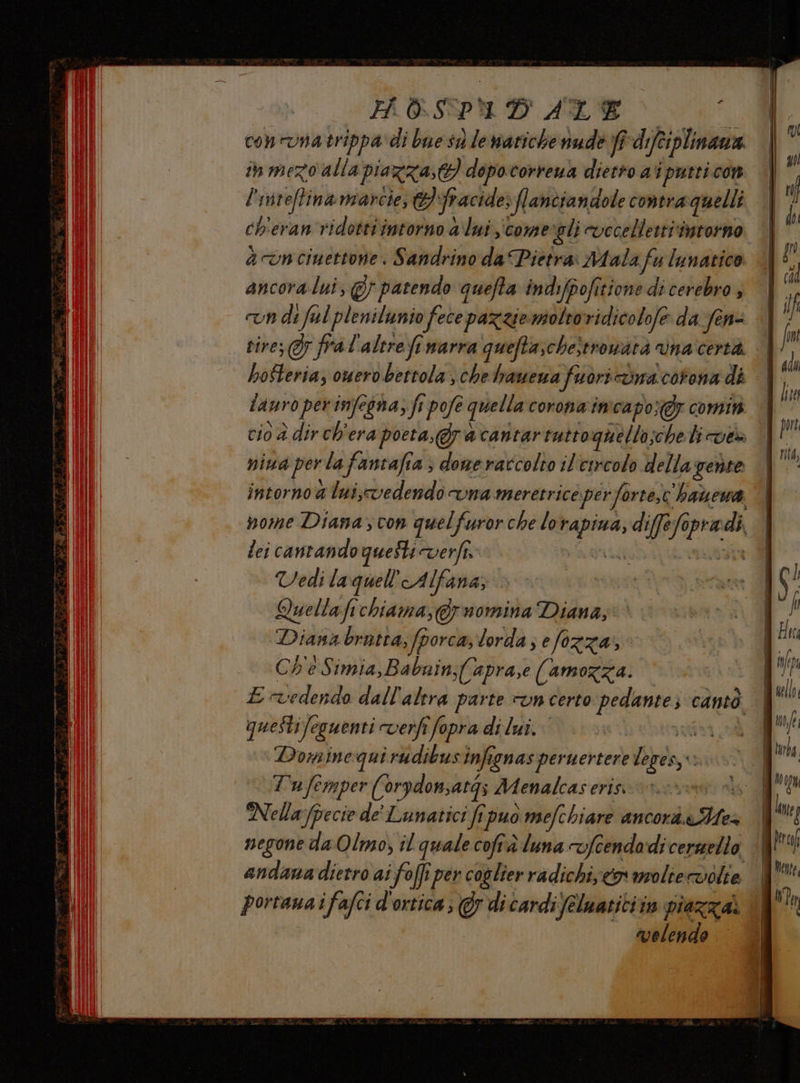 HOSPIDALE
con vna trippa di bue sù le natiche nude si disciplinaua
in mezo alla piazza, & dopo correua dietro ai putti con
l'intestina marcie, & fracide; slanciandole contra quelli
ch'eran ridotti intorno à lui, come gli vccelletti intorno
à vn ciuettone. Sandrino da Pietra Mala fu lunatico
ancora lui, & patendo questa indispositione di cerebro,
vn dì sul plenilunio fece pazzie molto ridicolose da sen-
tire; & fra l'altre si narra questa, che trouata vna certa
hosteria, ouero bettola, che haueua fuori vna corona di
lauro per insegna, si pose quella corona in capo; & comin
ciò à dir ch'era poeta, & à cantar tutto quello, che li ve-
niua per la fantasia; doue raccolto il circolo della gente
intorno à lui, vedendo vna meretrice per sorte, c'haueua
nome Diana, con quel furor che lo rapiua, disse sopra di
lei cantando questi versi.
Vedi la quell'Alfana,
Quella si chiama, & nomina Diana,
Diana brutta, sporca, lorda, e sozza,
Ch'è Simia, Babuin, Capra, e Camozza.
E vedendo dall'altra parte vn certo pedante, cantò
questi seguenti versi sopra di lui.
Domine qui rudibus insignas peruertere leges,
Tu semper Corydon, atq; Menalcas eris.
Nella specie de' Lunatici si può meschiare ancora Me-
negone da Olmo, il quale costà luna vscendo di ceruello
andaua dietro ai fossi per coglier radichi, & molte volte
portaua i fasci d'ortica, & di cardi seluatici in piazza;
volendo